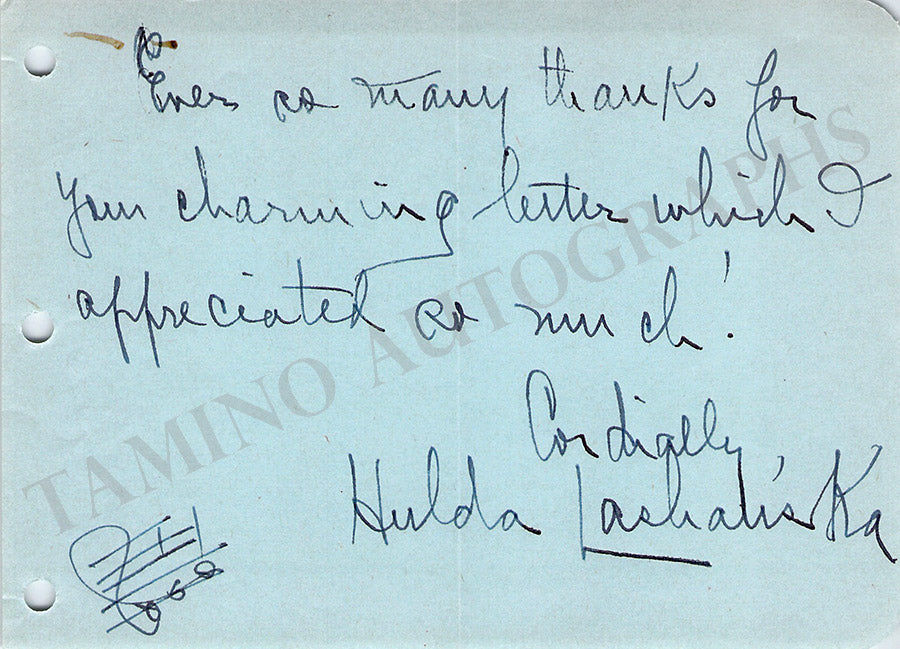 Ever so many thanks for
your charming letter which I
appreciated so much!
Cordially,
Hulda Lashanska
TAMINO AUTOGRAPHS